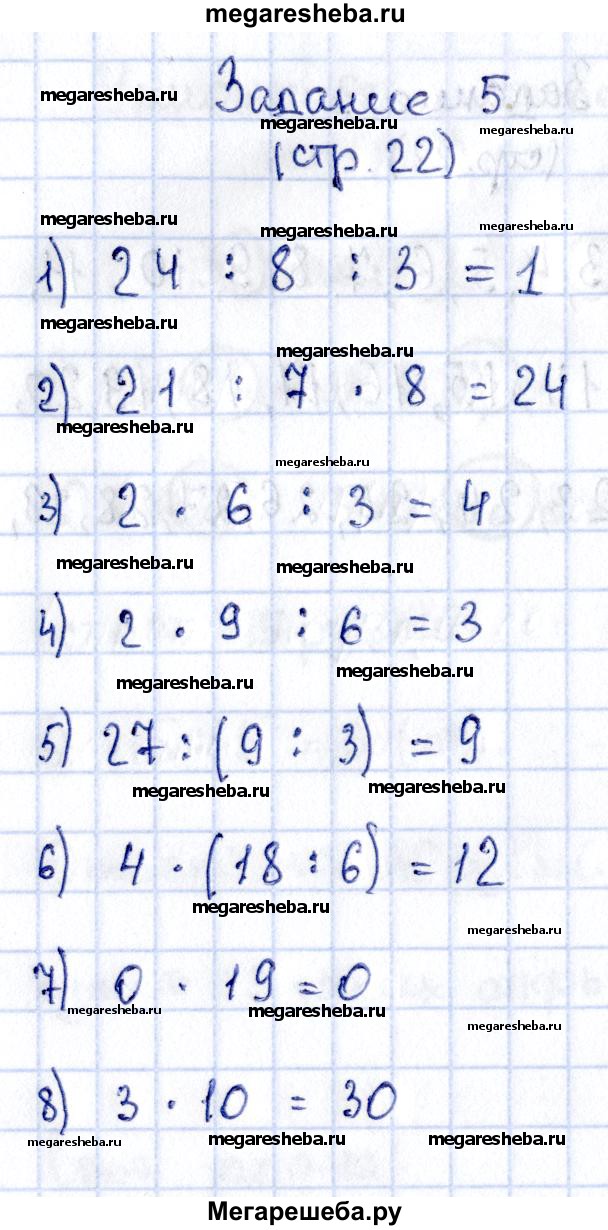 megaresheba.ru
Задание 5
megaresheba.ru megaresheba.ru megaresheba.ru
(стр. 22)
megaresheba.ru megaresheba.ru megaresheba.ru
1) 24 : 8 : 3 = 1
megaresheba.ru
megaresheba.ru
2) 218 : 7 · 8 = 24
megaresheba.ru megaresheba.ru
megaresheba.ru
3) 2 · 6 : 3 = 4
megaresheba.ru megaresheba.ru
4) 2 · 9 : 6 = 3
megaresheba.ru megaresheba.ru
5) 27 : (9 : 3) = 9
megaresheba.ru megaresheba.ru
6) 4 · (18 : 6) = 12
megaresheba.ru megaresheba.ru
7) 0 · 19 = 0
megaresheba.ru megaresheba.ru megaresheba.ru
8) 3 · 10 = 30
megaresheba.ru megaresheba.ru megaresheba.ru
Мегарешеба.ру